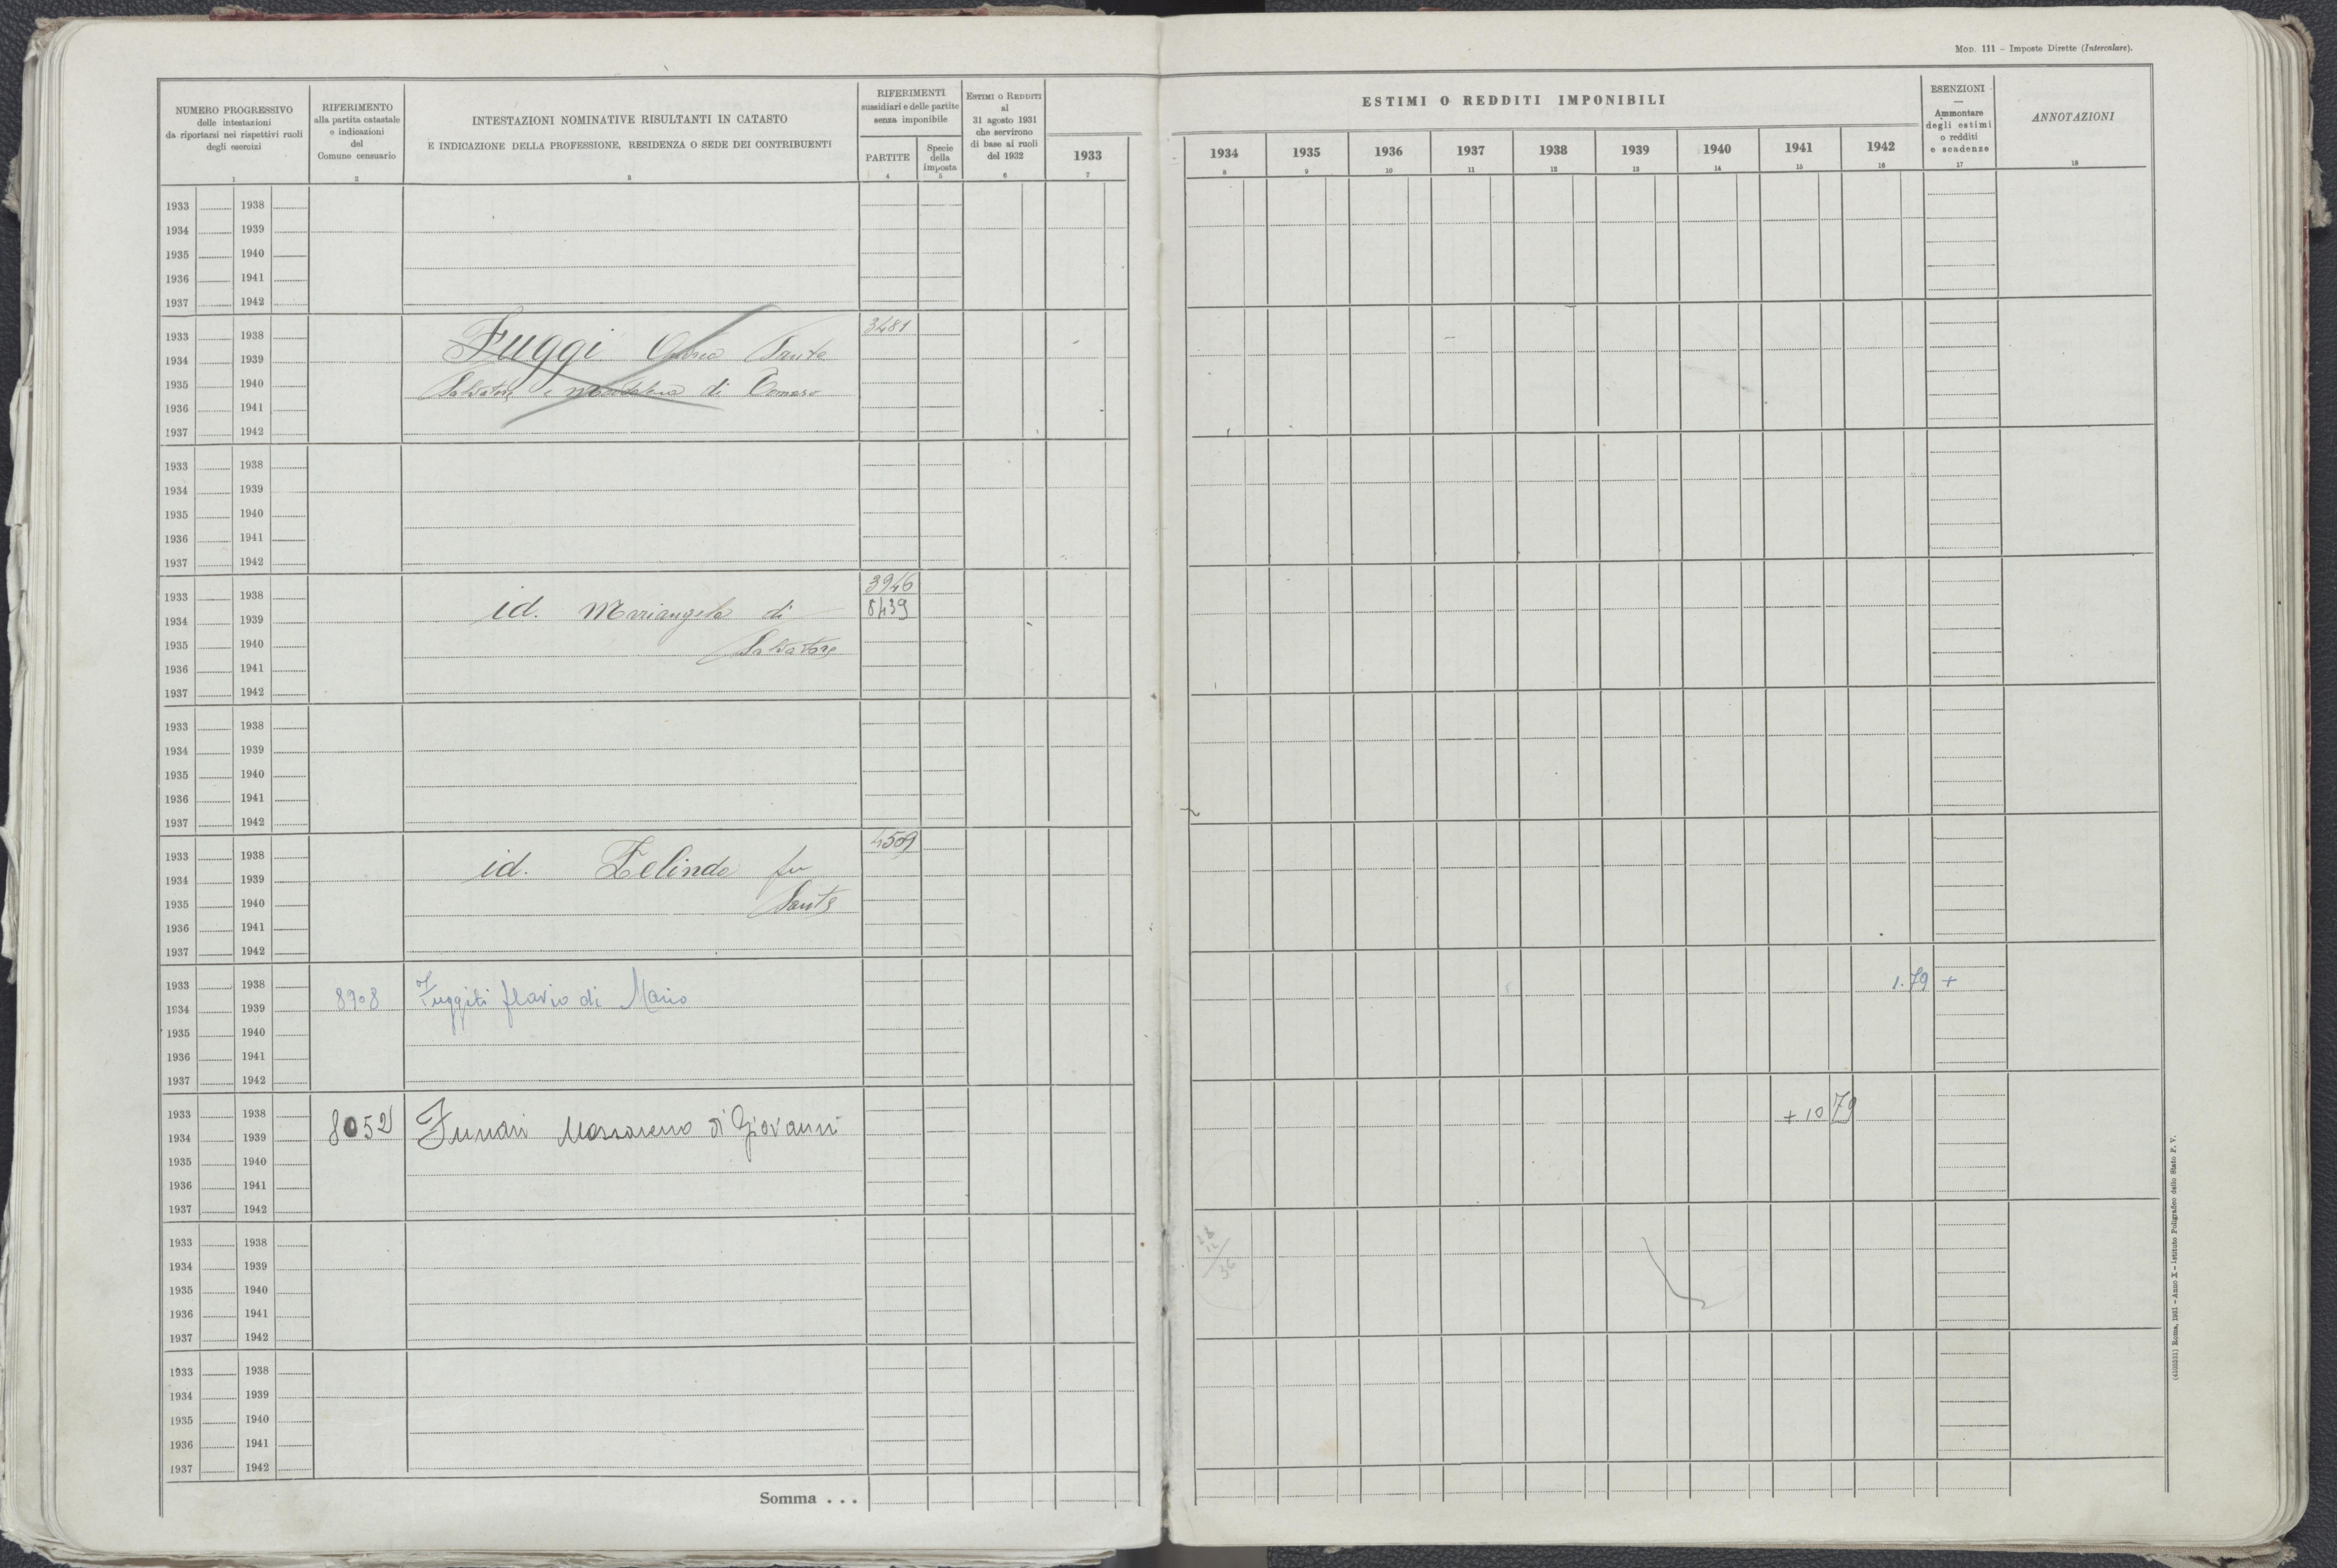 MOD. 111 – Imposte Dirette (Intercalare).
NUMERO PROGRESSIVO
delle intestazioni
da riportarsi nei rispettivi ruoli
degli esercizi
1
RIFERIMENTO
alla partita catastale
e indicazioni
del
Comune censuario
2
INTESTAZIONI NOMINATIVE RISULTANTI IN CATASTO
E INDICAZIONE DELLA PROFESSIONE, RESIDENZA O SEDE DEI CONTRIBUENTI
3
RIFERIMENTI
sussidiari e delle partite
senza imponibile
PARTITE
4
Specie
della
imposta
5
ESTIMI O REDDITI
al
31 agosto 1931
che servirono
di base ai ruoli
del 1932
6
1933
7
ESTIMI O REDDITI IMPONIBILI
1934 1935 1936 1937 1938 1939 1940 1941 1942
8 9 10 11 12 13 14 15 16
ESENZIONI
—
Ammontare
degli estimi
o redditi
e scadenze
17
ANNOTAZIONI
18
1933 1938
1934 1939
1935 1940
1936 1941
1937 1942
1933 1938 3481
1934 1939 Fuggi Anna Sante
1935 1940 Salvatore e Maddalena di Tomaso
1936 1941
1937 1942
1933 1938
1934 1939
1935 1940
1936 1941
1937 1942
3946
1933 1938 id. Mariangela di 8439
1934 1939
1935 1940 Salvatore
1936 1941
1937 1942
1933 1938
1934 1939
1935 1940
1936 1941
1937 1942
4509
1933 1938
1934 1939 id. Zelinda fu
1935 1940 Sante
1936 1941
1937 1942
1933 1938 1.79 +
1934 1939 8908 Fuggiti flavio di Mario
1935 1940
1936 1941
1937 1942
1933 1938 + 10 79
1934 1939 8052 Funari di Giovanni
1935 1940
1936 1941
1937 1942
1933 1938
1934 1939
1935 1940
1936 1941
1937 1942
36
1933 1938
1934 1939
1935 1940
1936 1941
1937 1942
Somma . . .
Roma, 1931 – Anno X – Istituto Poligrafico dello Stato P. V.